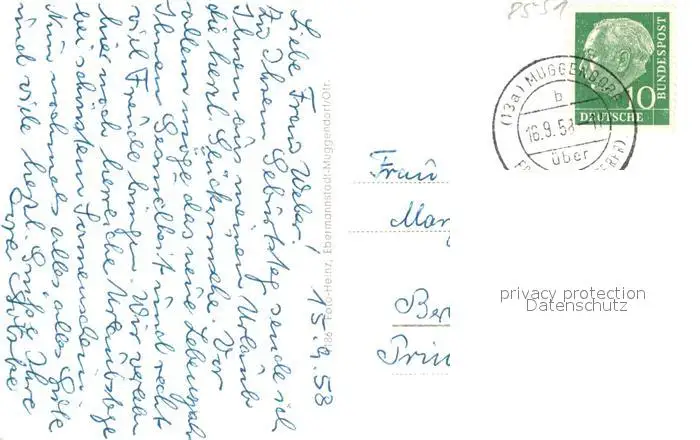 15.9.58
Liebe Frau Weber!
Zu Ihrem Geburtstag sende ich
Ihnen aus meinem Urlaub
die herzl. Glückwünsche. Vor
allem möge das neue Lebensjahr
Ihnen Gesundheit und recht
viel Freude bringen. Wir verleben
hier noch herrliche Urlaubstage
bei schönstem Sonnenschein.
Nun nochmals alles, alles Gute
und viele herzl. Grüße Ihre
Foto-Heinz, Ebermannstadt-Muggendorf/Ofr.
85-51
DEUTSCHE
BUNDESPOST
10
(13a) MUGGENDORF
b
16.9.58
über
Frau
Ber
Prin
privacy protection
Datenschutz